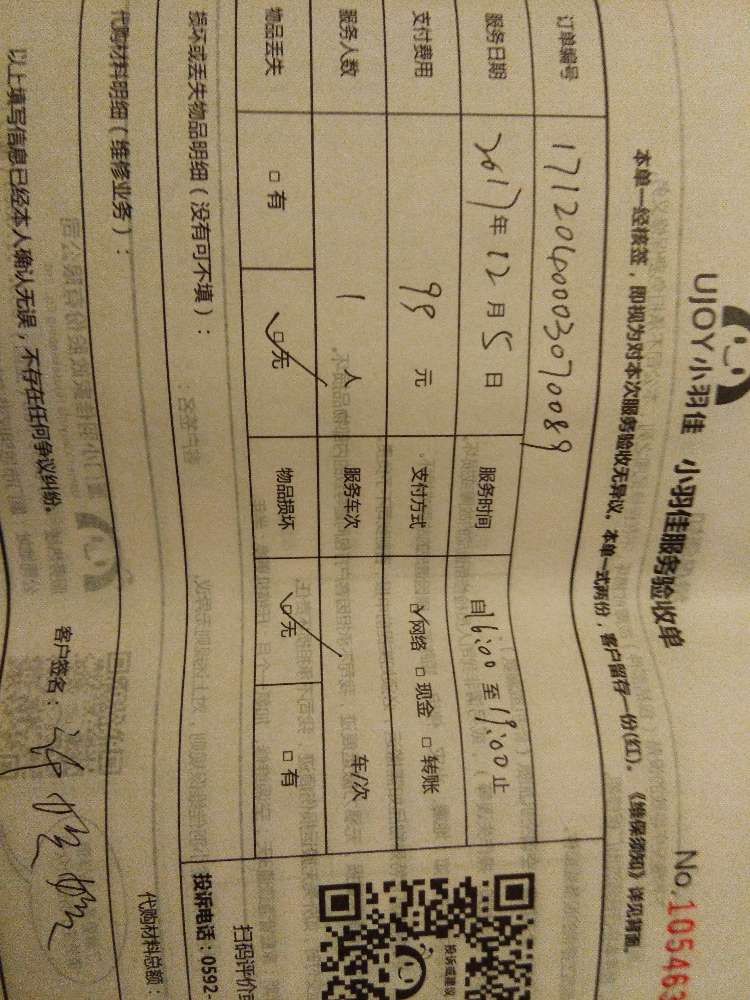 UJOY小羽佳 小羽佳服务验收单 No.10546
本单一经核签，即视为对本次服务验收无异议。本单一式两份，客户留存一份(红)。《维保须知》详见背面。
订单编号 1712040003070089
服务日期 2017年12月5日 服务时间 自16:00至19:00止
支付费用 99元 支付方式 网络 □现金 □转账
服务人数 1人 服务车次 车/次
物品丢失 □有 □无 物品损坏 □无 □有
损坏或丢失物品明细（没有可不填）：
投诉或建议
扫码评价
投诉电话：0592-
代购材料明细（维修业务）：
代购材料总额：
以上填写信息已经本人确认无误，不存在任何争议纠纷。 客户签名：